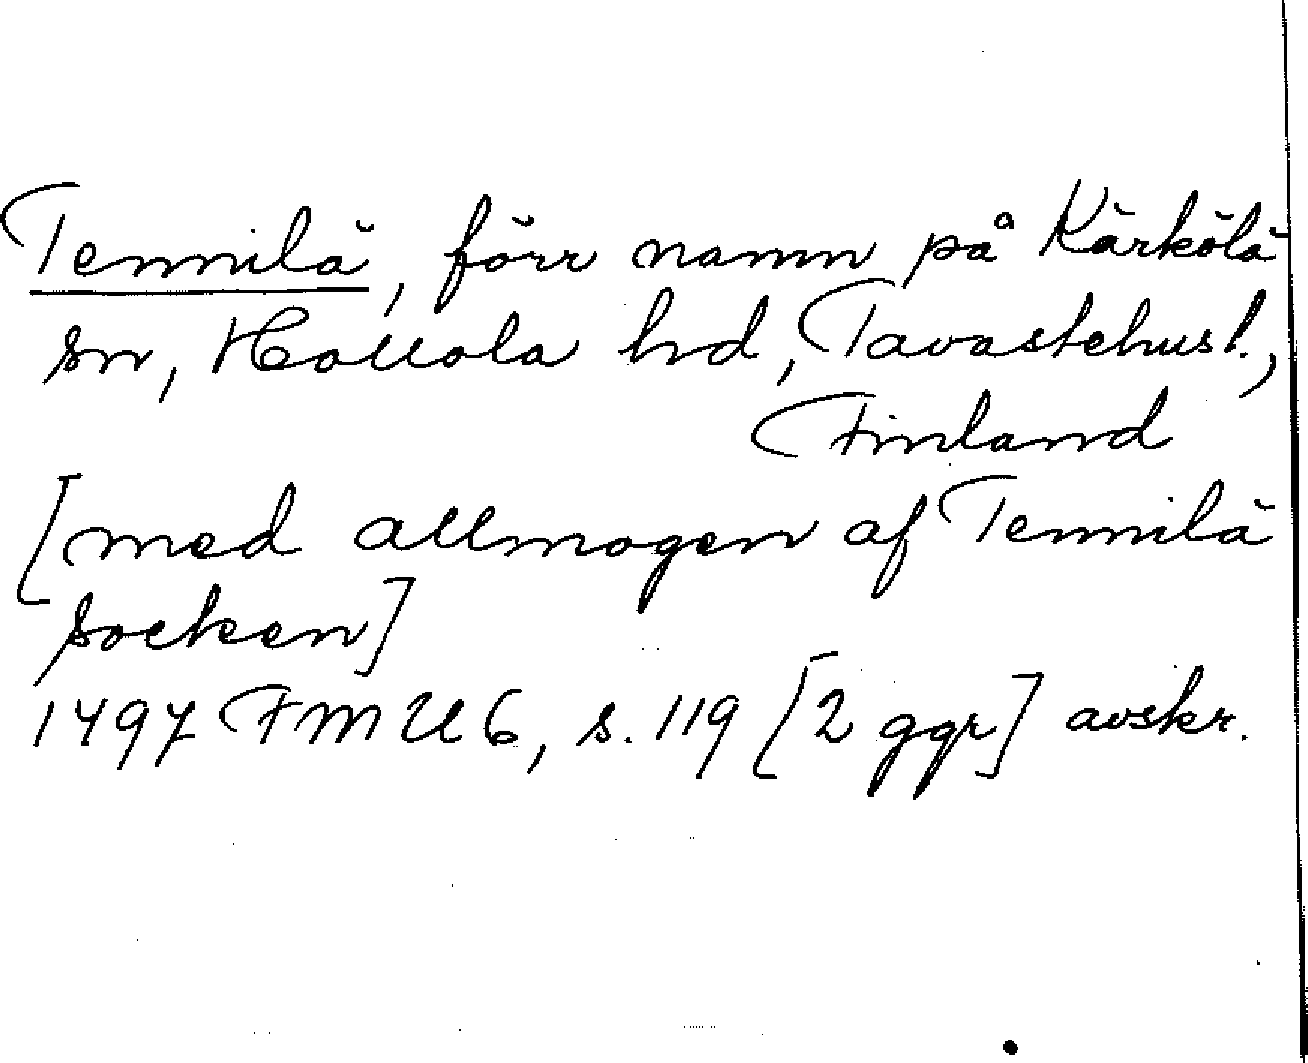 Tennilä, förr namn på Kärkölä
sn, Hollola hd, Tavastehusl.,
Finland
[med allmogen af Tennilä
socken]
1497 FMU 6, s. 119 [2 ggr] avskr.